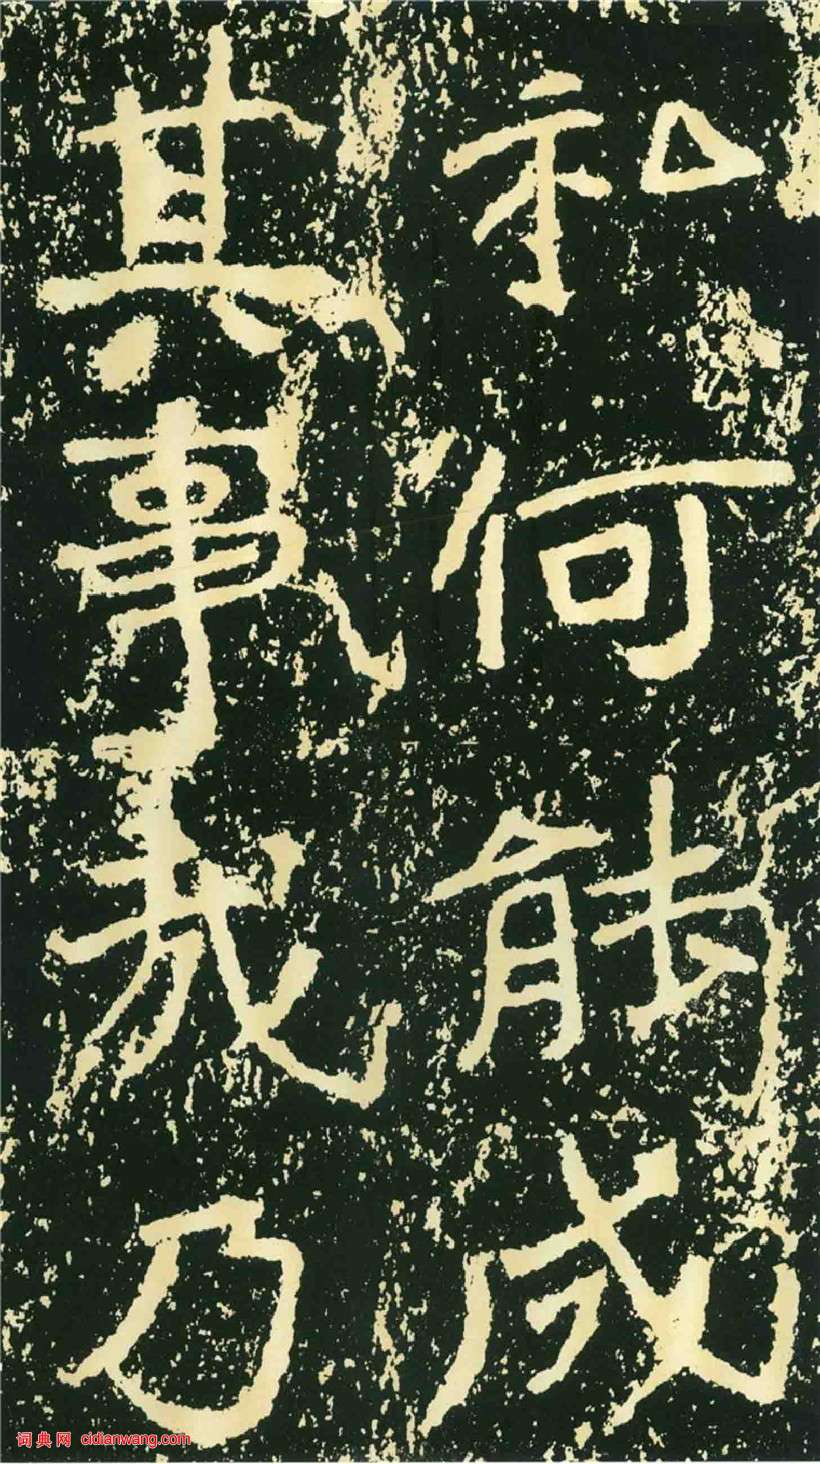 私何能成
其事哉乃
词典网 cidianwang.com